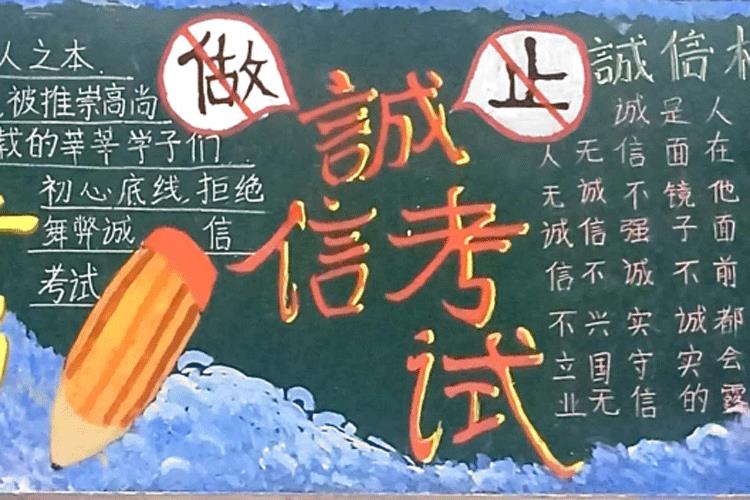 人之本.
被推崇高尚
载的莘莘学子们...
初心底线,拒绝
舞弊诚 信
考试
做
止
誠
信考
试
誠信
人无诚信不立业
无诚信不兴国无
诚信不强诚实守信
是面镜子不诚实的
人在他面前都会露